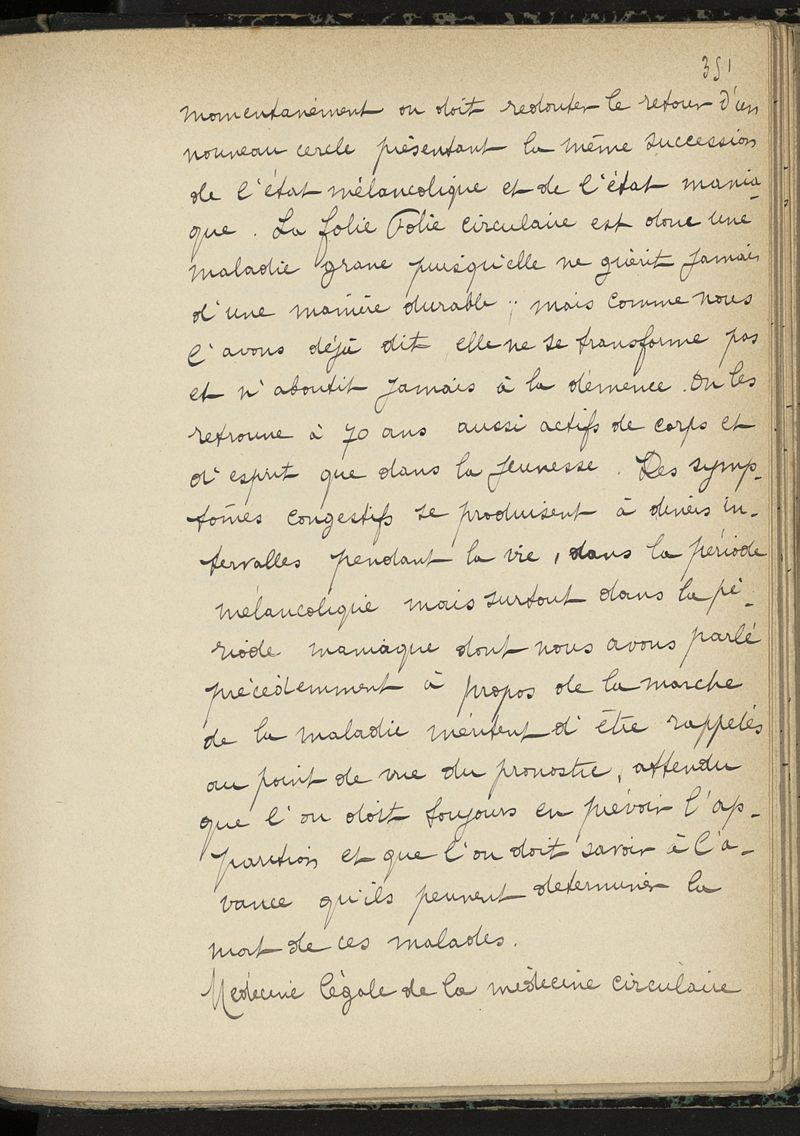 351
momentanément on doit redouter le retour d'un
nouveau cercle présentant la même succession
de l'état mélancolique et de l'état mania-
que. La folie Folie circulaire est donc une
maladie grave puisqu'elle ne guérit jamais
d'une manière durable ; mais comme nous
l'avons déjà dit elle ne se transforme pas
et n'aboutit jamais à la démence. On les
retrouve à 70 ans aussi actifs de corps et
d'esprit que dans la jeunesse. Des symp-
tômes congestifs se produisent à divers in-
tervalles pendant la vie, dans la période
mélancolique mais surtout dans la pé-
riode maniaque dont nous avons parlé
précédemment à propos de la marche
de la maladie méritent d'être rappelés
au point de vue du pronostic, attendu
que l'on doit toujours en prévoir l'ap-
parition et que l'on doit savoir à l'a-
vance qu'ils peuvent determiner la
mort de ces malades.
Médecine légale de la médecine circulaire